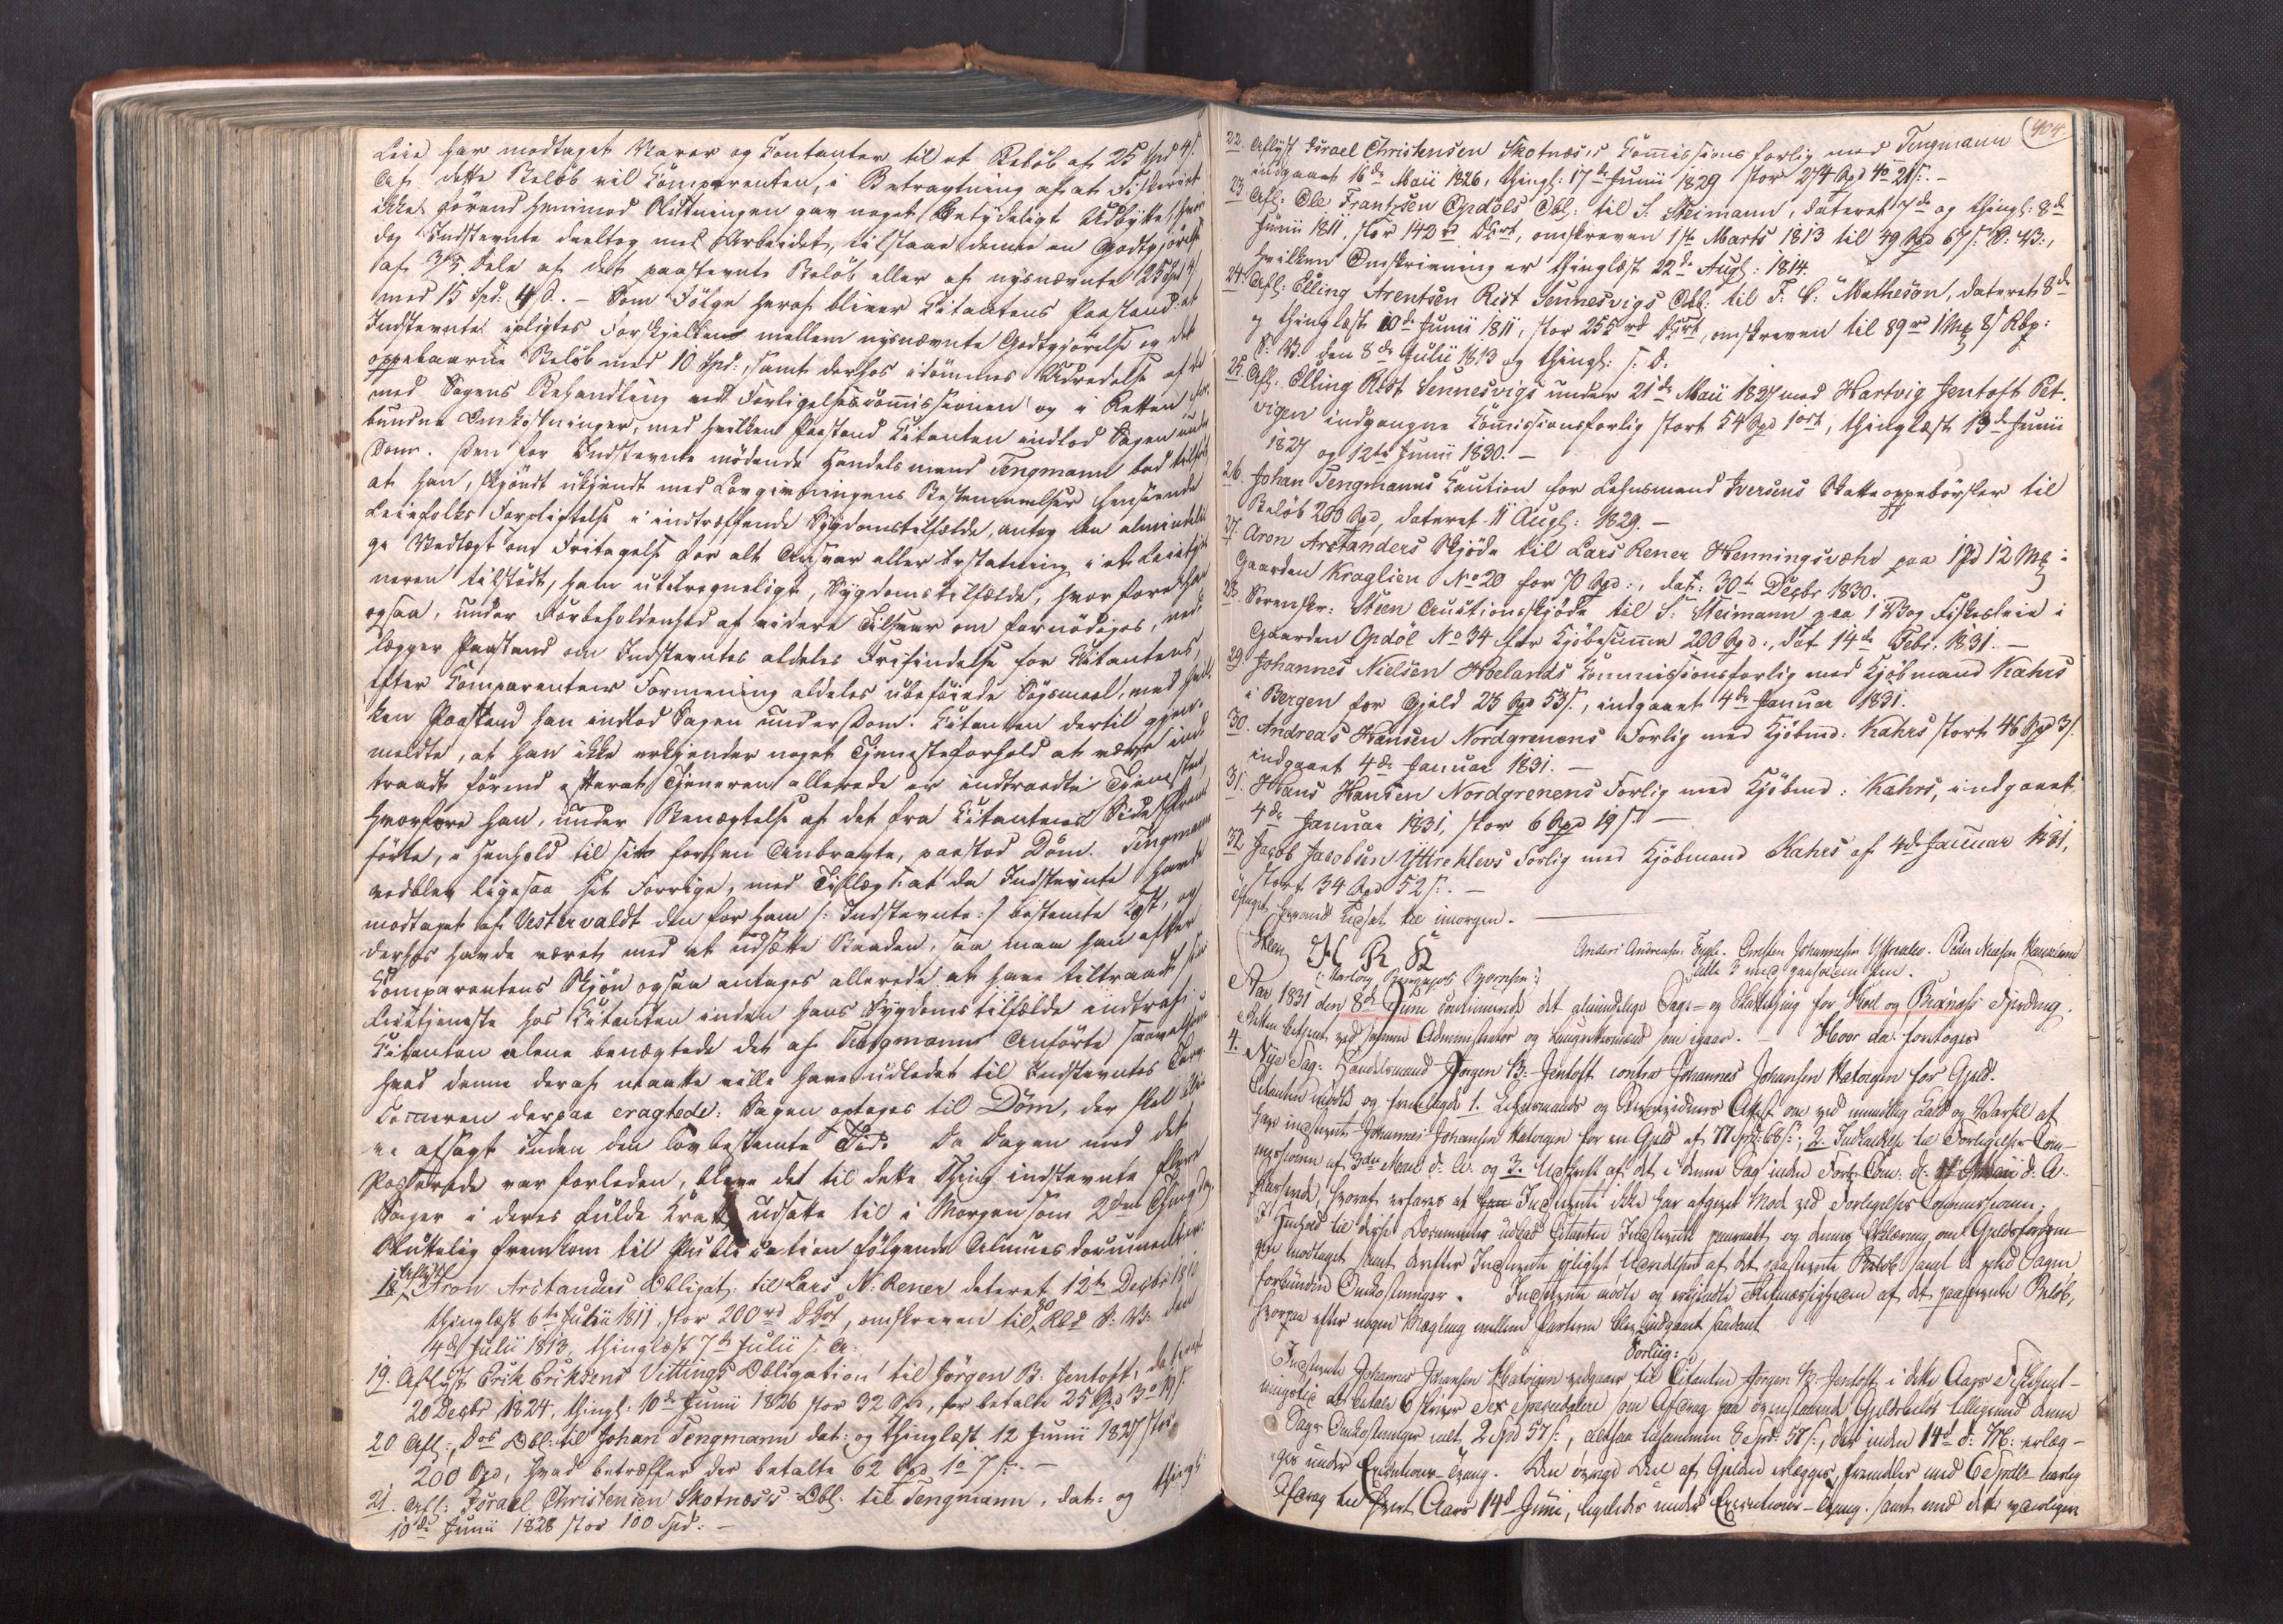 Leie har modtaget Varer og Contanter til et Beløb af 25 Spd 4 s.
Af dette Beløb vil Comparenten, i Betragtning af at Fiskeriet
ikke førend henimod Slutningen gav noget betydeligt Udbytte, hvor
dog Indstevnte deeltog med Arbeidet, tilstaae denne en Godtgjørelse
af 3/5 Dele af det paastevnte Beløb eller af nysnævnte 25 Spd 4 s
med 15 Spd: 4 s. - Som Følge heraf bliver Citantens Paastand: at
Indstevnte ipligtes Forskjellen mellem nysnævnte Godtgjørelse og det
oppebaarne Beløb med 10 Spd:, samt derhos idømmes Udredelse af de
med Sagens Behandling ved Forligelsescommissionen og i Retten for-
bundne Omkostninger, med hvilken Paastand Citanten indlod Sagen under
Dom. Den for Indstevnte mødende Handelsmand Tengmann bad tilført
at han, skjøndt ukjendt med Lovgivningens Bestemmelser henseende
Leiefolks Forpligtelse i indtræffende Sygdomstilfælde, antog den almindeli-
ge Vedtægt om Fritagelse for alt Ansvar eller Erstatning i et Leietje-
neren tilstødt, ham utilregneligt, Sygdomstilfælde, hvorfore han
ogsaa, under Forbeholdenhed af videre Tilsvar om fornødiges, ned-
lægger Paastand om Indstevntes aldeles Frifindelse for Citantens,
efter Comparentens Formening aldeles ubeføiede Søgsmaal, med hvil-
ken Paastand han indlod Sagen under Dom. Citanten dertil gjen-
meldte, at han ikke erkjender noget Tjenesteforhold at være ind-
traadt førend efterat Tjeneren allerede er indtraadt i Tjenesten,
hvorfore han, under Benægtelse af det fra Citantens Side frem-
førte, i Henhold til sit forhen Anbragte, paastod Dom. Tengmann
vedblev ligesaa sit Forrige, med Tillæg: at da Indstevnte havde
modtaget af Vestervaldt den for ham /: Indstevnte :/ bestemte Kost, og
derhos havde været med at udsætte Baaden, saa maa han efter
Comparentens Skjøn ogsaa antages allerede at have tiltraadt sin
Leietjeneste hos Citanten inden hans Sygdomstilfælde indtraf.
Citanten alene benægtede det af Tengmann Anførte saavelsom
hvad denne deraf maatte ville have udledet til Indstevntes Tarv.
Dommeren derpaa eragtede: Sagen optages til Dom, der skal bli-
ve afsagt inden den lovbestemte Tid. Da Dagen med det
Passerede var forleden, bleve det til dette Thing indstevnte flere
Sager i deres fulde Kraft udsatte til i Morgen som 2den Thingdag
Sluttelig fremkom til Publication følgende Almues documenter:
18. Aflyst Aron Arctanders Obligat: til Lars N. Rener dateret 12te Decbr 1810
thinglæst 6te Julii 1811, stor 200 rd D Crt, omskreven til Rbd S. V. den
4de Julii 1813, thinglæst 7de Julii s. A.
19. Aflyst Erik Eriksens Vittings Obligation til Jørgen B. Jentoft, dateret
20 Decbr 1824, thingl: 10de Junii 1826 stor 32 Spd, for betalte 25 Spd 3 o 19 s.
20 Afl: Dos Obl: til Johan Tengmann dat: og thinglæst 12 Junii 1827 stor
200 Spd, hvad betræffer der betalte 62 Spd 1 o 7 s. -
21. Afl: Israel Christensen Skotnæs's Obl. til Tengmann, dat: og thingl:
10de Junii 1828 stor 100 Spd: -
404
22. Aflyst Israel Christensen Skotnæs's Commissions forlig med Tengmann
indgaaet 16de Maii 1826, thingl: 17de Junii 1829 stor 274 Spd 4 o 21 s. -
23 Afl: Ole Frantzsen Opdøls Obl: til S. Steimann, dateret 7de og thingl: 8de
Junii 1811, stor 142 rd D Crt, omskreven 1ste Marts 1813 til 49 Rbd 67 s. S. V.,
hvilken Omskrivning er thinglæst 22de Augs: 1814.
24. Afl: Elling Arentsen Rist Sennesvigs Obl. til F. C. Matheson, dateret 8de
og thinglæst 10de Junii 1811, stor 255 rd D Crt, omskreven til 89 rd 1 Mk 8 s Rbp:
S. V. den 8de Julii 1813 og thingl: s. D.
25. Afl: Elling Rist Sennesvigs under 21de Maii 1827 med Hartvig Jentoft Pet-
vigen indgangne Commissionsforlig stort 54 Spd 1 ort, thinglæst 13de Junii
1827 og 12te Junii 1830. -
26. Johan Tengmanns Caution for Lehnsmand Iversens Skatteoppebørsler til
Beløb 200 Spd, dateret 11 Augs: 1829. -
27. Aron Arctanders Skjøde til Lars Rener Henningsvæhr paa 1 Pd 12 Mk i
Gaarden Kraglien No 20 for 70 Spd:, dat: 30te Decbr 1830.
28. Sorenskr: Steen Auctionsskjøde til S. Steimann paa 1 Vog Fiskesleie i
Gaarden Opdøl No 34 for Kjøbesumma 200 Spd:, dat 14de Febr. 1831. -
29. Johannes Nielsen Hoelands Commissionsforlig med Kjøbmand Kahrs
i Bergen for Gjeld 25 Spd 53 s., indgaaet 4de Januar 1831.
30. Andreas Hansen Nordgrenens Forlig med Kjøbmd: Kahrs stort 46 Spd 3 s.
indgaaet 4de Januar 1831. -
31. Hans Hansen Nordgrenens Forlig med Kjøbmd: Kahrs, indgaaet
4de Januar 1831, stor 6 Spd 19 s. -
32 Jacob Jacobsen Yttreklevs Forlig med Kjøbmand Kahrs af 4de Januar 1831,
stort 34 Spd 52 s. -
Thinget herved udsat til imorgen.
Steen
H B H
Anders Andreassen Johannesen Peder
alle 3 med paaholden Pen.
Aar 1831 den 8de Juni continueredes det almindelige Sage- og Skattething for Hoel og Buxnæss Fjerding.
Retten betjent ved samme Administrator og Laugrettesmænd som igaar. - Hvor da foretoges
4. Nye Sag: Handelsmand Jørgen B. Jentoft contra Johannes Johansen Hatvigen for Gjeld.
Citanten mødte og fremlagde 1. Lehnsmands og Stevnevidners Attest om ved mundtlig Kald og Varsel at
have indstevnt Johannes Johansen Hatvigen for en Gjeld af 77 Spd: 68 s.; 2. Indkaldelse til Forligelses Com-
missionen af 3die Marts d. A. og 3. Udskrift af det i denne Sag inden Forl: Com: d: Maii d. A.
Passerede, hvoraf erfares at Indstevnte ikke har afgivet Møde ved Forligelses Commissionen.
I Henhold til disse Documenter udbad Citanten Indstevnte paaraabt og dennes Erklæring om Gjeldsfordrin-
gen modtaget samt derefter Indstevnte ipligtet Udredelsen af det paastevnte Beløb samt de ved Sagen
forbundne Omkostninger. Indstevnte mødte og erkjendte Rettmæssigheden af det paastevnte Beløb,
hvorpaa efter nogen Mægling mellem Parterne blev indgaaet saadant
Forliig:
Indstevnte Johannes Johansen Hatvigen vedgaaer til Citanten Jørgen B. Jentoft i dette Aars
at betale 6 skriver Sex Speciedaler som Afdrag paa ovenstaaende Gjeldsbeløb tilligemed denne
Sags Omkostninger ialt 2 Spd 57 s., altsaa tilsammen 8 Spd: 57 s., der inden 14de d: M: erlæg-
ges under Executions-Tvang. Den øvrige Deel af Gjelden erlægges fremdeles med 6 Spdlr aarlig
Afdrag til hvert Aars 14de Juni, ligeledes under Executions-Tvang, samt med det